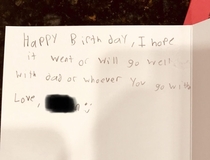 Happy Birthday, I hope
it went or will go well
with dad or whoever you go with
Love, h :)